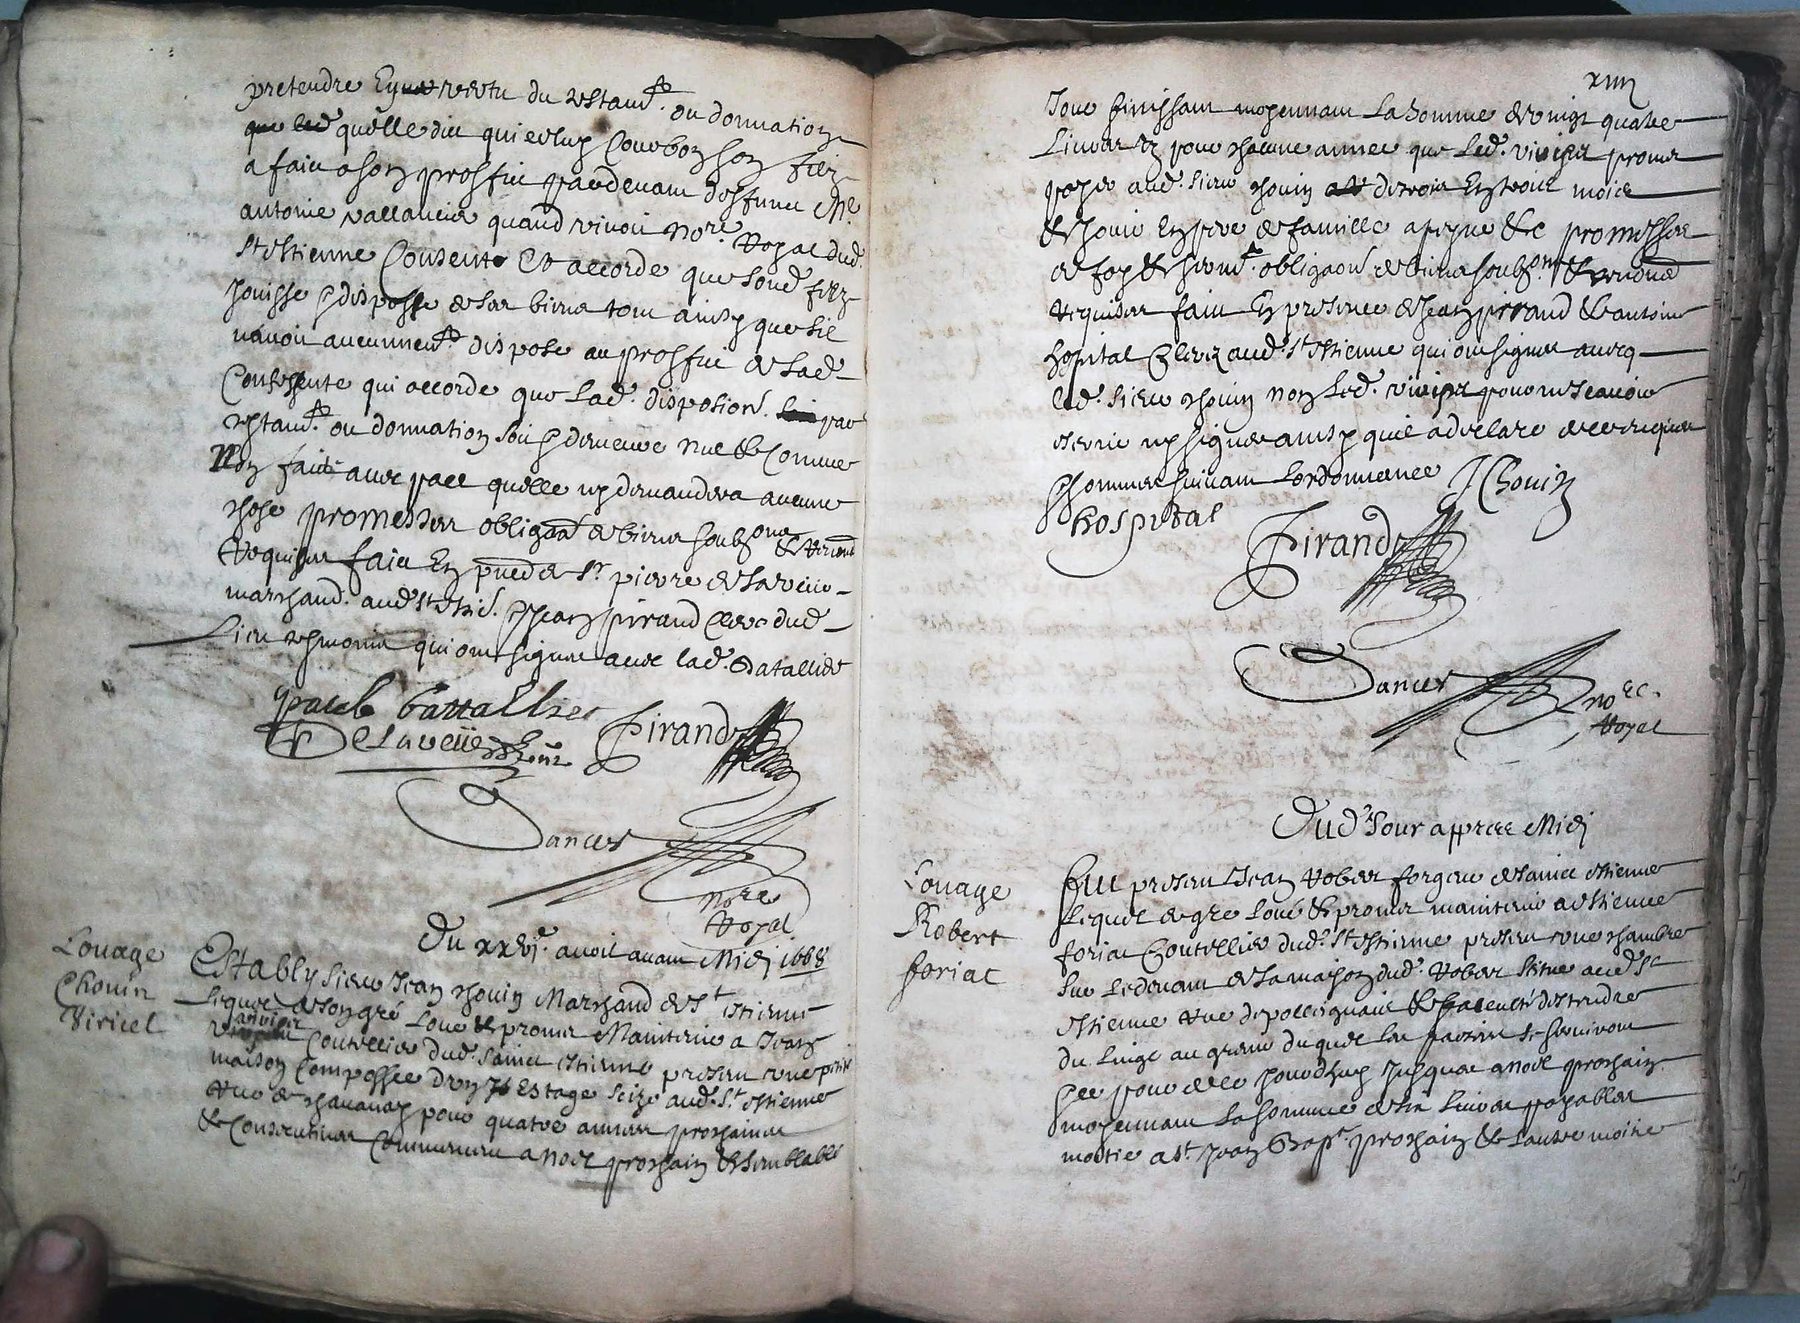 pretendre En vertu du testam.t ou donnation
quelle dit qui estup Courbon son filz
a faict a son proffict pardevant deffunct Me
antoine vallancier quand vivoit nore. Royal dud.
St Estienne Consent et accorde que sond. filz
Jouisse & dispose de ses biens tout ainsy que sil
navoit aucunnem.t dispose au proffict de lad.
Consente qui accorde que lad. disposion. par
testam.t ou donnation soit & demeure nul & Comme
Non faict avec pact quelle ny demandera aucune
chose promesses obligaon de biens soubzons & renond
Requises faict En pnce de Sr. pierre de laveue
marchand. aud St Estie. & Jean pirand Clerc dud
Lieu tesmoins qui ont signes avec lad. Batallier
Pirand
Dancer
nore
Royal
Du xxvi. avril avant Midi 1668
Louage
Chouin
Viricel
Establÿ sieur Jean Chouin Marchand de St. Estienne
Lequel de son gré Loue & promet Maintenir a Jean
Coutellier dud. Sainct Estienne present une petite
maison Compossee d'un Estage Seize aud. St. Estienne
Rue de chavanay pour quatre annees prochaines
& Consecutives Commencent a noel prochain & semblable
xiiii
Jour finissant moyennant La somme de vingt quatre
Livres pour chacune annee que Led. promet
payer aud. sieur Chouin de trois En trois mois
& Jouir En pere de famille a peyne &c promesses
de foy & serm.t obligaon de biens soubzons & renond
Requises faict En presence de Jean pirand & antoine
hopital Clercz aud. St Estienne qui ont signes avecq
led. sieur Chouin non Led. pour ne scavoir
escrire ny signer ainsy quil a declare de ce enquis
& sommes suivant Lordonnance J Chouin
hospital
Pirand
Dancer
nore.
Royal
Dud. Jour apprees Midi
Louage
Robert
foriat
fut present Jean Robert forgeur de sainct Estienne
Lequel de gre Loué & promet maintenir a Estienne
foriat Coutellier dud. St Estienne present une chambre
sur Ledevant de sa maison dud. Robert Situe aud. St
Estienne Rue de pollignais & faculté destendre
du Linge au grenier duquel les parties se serviront
& ce pour & ce Jourdhuy Jusques a noel prochain
moyennant La somme de six Livres payables
moitie a St Jean Bapt. prochain & Lautre moitie